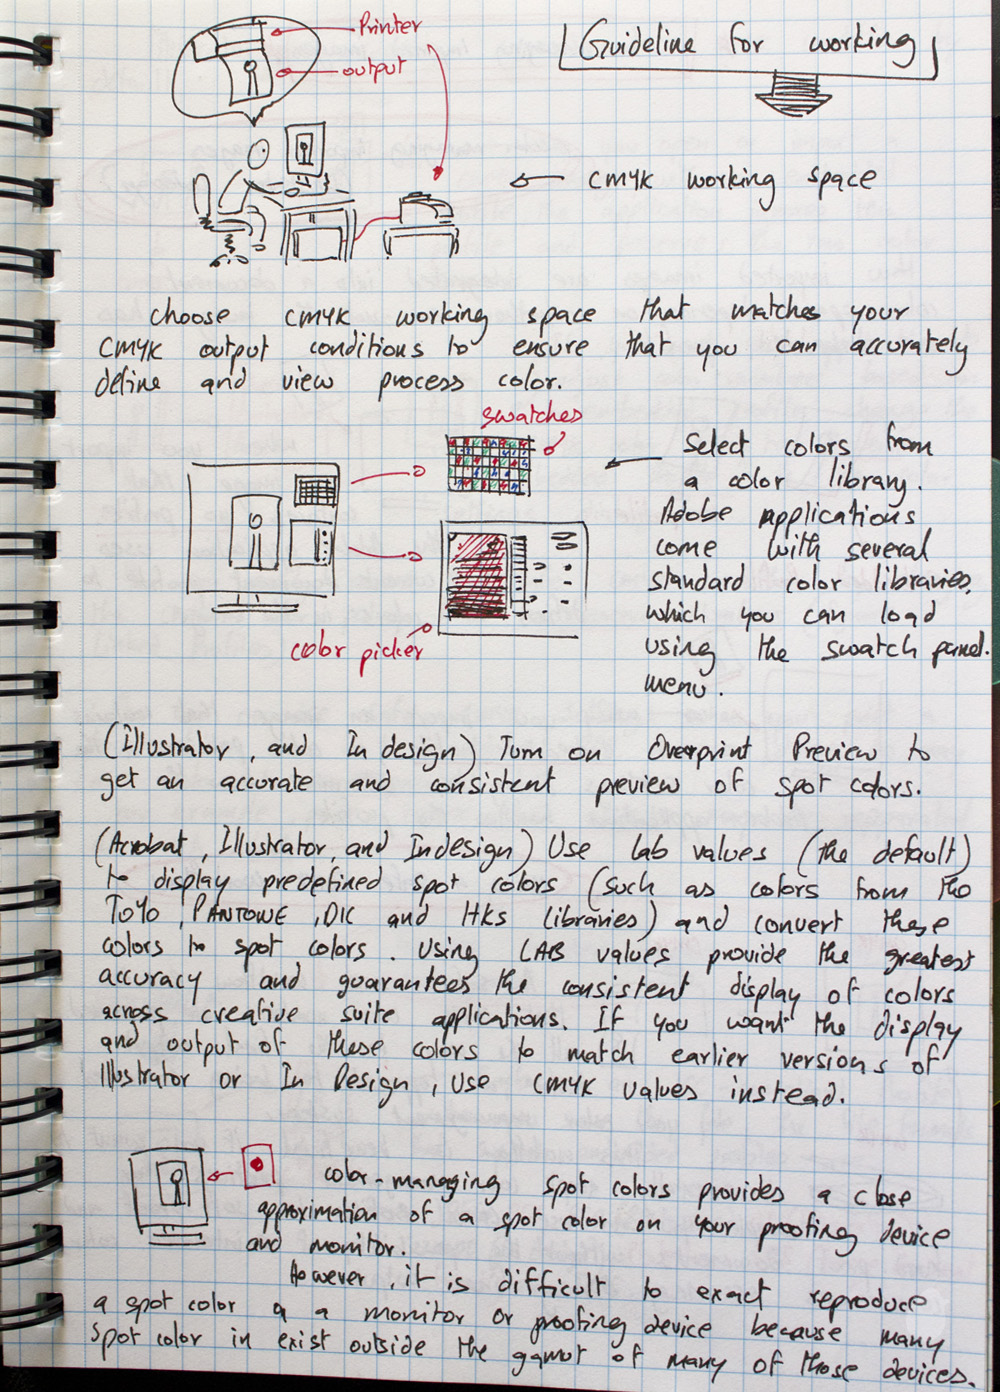 Printer
output
Guideline for working
CMYK working space
choose CMYK working space that matches your
CMYK output conditions to ensure that you can accurately
define and view process color.
swatches
color picker
Select colors from
a color library.
Adobe applications
come with several
standard color libraries,
which you can load
using the swatch panel.
menu.
(Illustrator, and In design) Turn on Overprint Preview to
get an accurate and consistent preview of spot colors.
(Acrobat, Illustrator, and Indesign) Use Lab values (the default)
to display predefined spot colors (such as colors from the
TOYO, PANTOWE, DIC and HKS libraries) and convert these
colors to spot colors. Using LAB values provide the greatest
accuracy and guarantees the consistent display of colors
across creative suite applications. If you want the display
and output of these colors to match earlier versions of
Illustrator or In Design, use CMYK values instead.
color-managing spot colors provides a close
approximation of a spot color on your proofing device
and monitor.
However, it is difficult to exact reproduce
a spot color a a monitor or proofing device because many
spot color in exist outside the gamut of many of those devices.